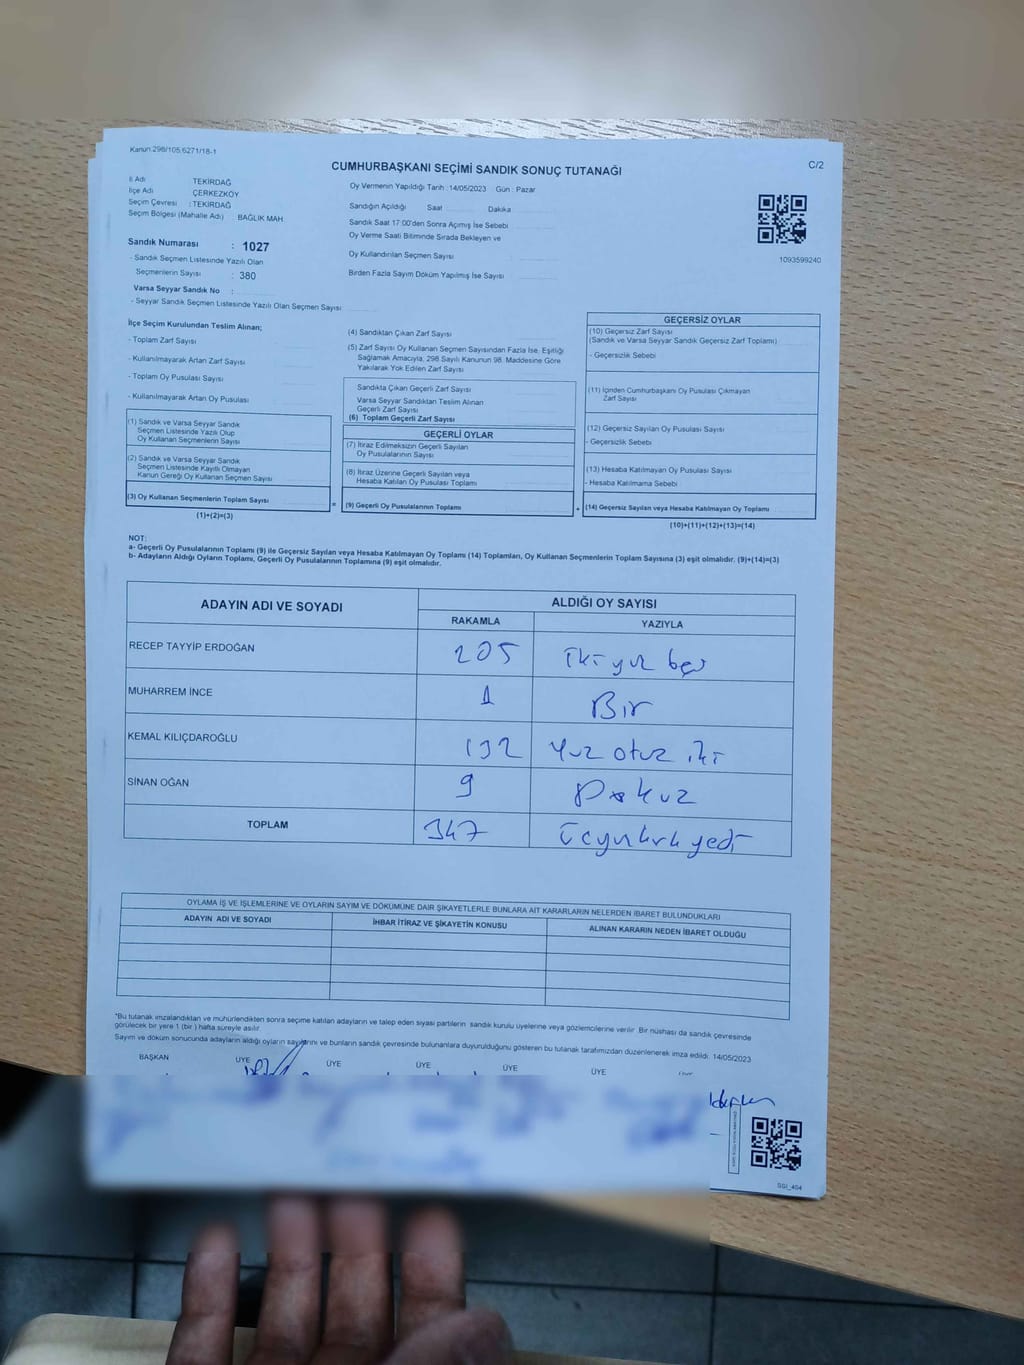 Kanun.298/105,6271/18-1
C/2
CUMHURBAŞKANI SEÇİMİ SANDIK SONUÇ TUTANAĞI
İl Adı TEKİRDAĞ
İlçe Adı ÇERKEZKÖY
Seçim Çevresi : TEKİRDAĞ
Seçim Bölgesi (Mahalle Adı) BAĞLIK MAH
Oy Vermenin Yapıldığı Tarih : 14/05/2023 Gün : Pazar
Sandığın Açıldığı Saat Dakika
Sandık Saat 17:00'den Sonra Açımış İse Sebebi
Oy Verme Saati Bitiminde Sırada Bekleyen ve
Oy Kullandırılan Seçmen Sayısı
Birden Fazla Sayım Döküm Yapılmış İse Sayısı
1093599240
Sandık Numarası : 1027
- Sandık Seçmen Listesinde Yazılı Olan
Seçmenlerin Sayısı : 380
Varsa Seyyar Sandık No :
- Seyyar Sandık Seçmen Listesinde Yazılı Olan Seçmen Sayısı
İlçe Seçim Kurulundan Teslim Alınan;
- Toplam Zarf Sayısı
- Kullanılmayarak Artan Zarf Sayısı
- Toplam Oy Pusulası Sayısı
- Kullanılmayarak Artan Oy Pusulası
(1) Sandık ve Varsa Seyyar Sandık
Seçmen Listesinde Yazılı Olup
Oy Kullanan Seçmenlerin Sayısı
(2) Sandık ve Varsa Seyyar Sandık
Seçmen Listesinde Kayıtlı Olmayan
Kanun Gereği Oy Kullanan Seçmen Sayısı
(3) Oy Kullanan Seçmenlerin Toplam Sayısı
(1)+(2)=(3)
(4) Sandıktan Çıkan Zarf Sayısı
(5) Zarf Sayısı Oy Kullanan Seçmen Sayısından Fazla İse, Eşitliği
Sağlamak Amacıyla, 298 Sayılı Kanunun 98. Maddesine Göre
Yakılarak Yok Edilen Zarf Sayısı
Sandıkta Çıkan Geçerli Zarf Sayısı
Varsa Seyyar Sandıktan Teslim Alınan
Geçerli Zarf Sayısı
(6) Toplam Geçerli Zarf Sayısı
GEÇERLİ OYLAR
(7) İtiraz Edilmeksizin Geçerli Sayılan
Oy Pusulalarının Sayısı
(8) İtiraz Üzerine Geçerli Sayılan veya
Hesaba Katılan Oy Pusulası Toplamı
= (9) Geçerli Oy Pusulalarının Toplamı
GEÇERSİZ OYLAR
(10) Geçersiz Zarf Sayısı
(Sandık ve Varsa Seyyar Sandık Geçersiz Zarf Toplamı)
- Geçersizlik Sebebi
(11) İçinden Cumhurbaşkanı Oy Pusulası Çıkmayan
Zarf Sayısı
(12) Geçersiz Sayılan Oy Pusulası Sayısı
- Geçersizlik Sebebi
(13) Hesaba Katılmayan Oy Pusulası Sayısı
- Hesaba Katılmama Sebebi
+ (14) Geçersiz Sayılan veya Hesaba Katılmayan Oy Toplamı
(10)+(11)+(12)+(13)=(14)
NOT:
a- Geçerli Oy Pusulalarının Toplamı (9) ile Geçersiz Sayılan veya Hesaba Katılmayan Oy Toplamı (14) Toplamları, Oy Kullanan Seçmenlerin Toplam Sayısına (3) eşit olmalıdır. (9)+(14)=(3)
b- Adayların Aldığı Oyların Toplamı, Geçerli Oy Pusulalarının Toplamına (9) eşit olmalıdır.
ADAYIN ADI VE SOYADI ALDIĞI OY SAYISI
RAKAMLA YAZIYLA
RECEP TAYYİP ERDOĞAN 205 iki yuz beş
MUHARREM İNCE 1 Bir
KEMAL KILIÇDAROĞLU 132 Yuz otuz iki
SİNAN OĞAN 9 Dokuz
TOPLAM 347 Üçyuzkırkyedi
OYLAMA İŞ VE İŞLEMLERİNE VE OYLARIN SAYIM VE DÖKÜMÜNE DAİR ŞİKAYETLERLE BUNLARA AİT KARARLARIN NELERDEN İBARET BULUNDUKLARI
ADAYIN ADI VE SOYADI İHBAR İTİRAZ VE ŞİKAYETİN KONUSU ALINAN KARARIN NEDEN İBARET OLDUĞU
*Bu tutanak imzalandıktan ve mühürlendikten sonra seçime katılan adayların ve talep eden siyasi partilerin sandık kurulu üyelerine veya gözlemcilerine verilir. Bir nüshası da sandık çevresinde
görülecek bir yere 1 (bir) hafta süreyle asılır.
Sayım ve döküm sonucunda adayların aldığı oyların sayılarını ve bunların sandık çevresinde bulunanlara duyurulduğunu gösteren bu tutanak tarafımızdan düzenlenerek imza edildi. 14/05/2023
BAŞKAN ÜYE ÜYE ÜYE ÜYE ÜYE
SSI_404